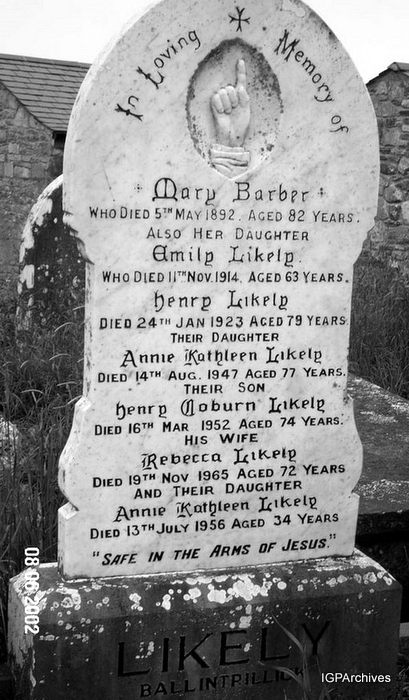 In Loving Memory of
Mary Barber
WHO DIED 5TH MAY 1892. AGED 82 YEARS.
ALSO HER DAUGHTER
Emily Likely.
WHO DIED 11TH NOV. 1914. AGED 63 YEARS.
Henry Likely
DIED 24TH JAN 1923 AGED 79 YEARS.
THEIR DAUGHTER
Annie Kathleen Likely
DIED 14TH AUG. 1947 AGED 77 YEARS.
THEIR SON
Henry Coburn Likely
DIED 16TH MAR 1952 AGED 74 YEARS.
HIS WIFE
Rebecca Likely
DIED 19TH NOV 1965 AGED 72 YEARS
AND THEIR DAUGHTER
Annie Kathleen Likely
DIED 13TH JULY 1956 AGED 34 YEARS
"SAFE IN THE ARMS OF JESUS."
LIKELY
BALLINTRILLICK
IGPArchives